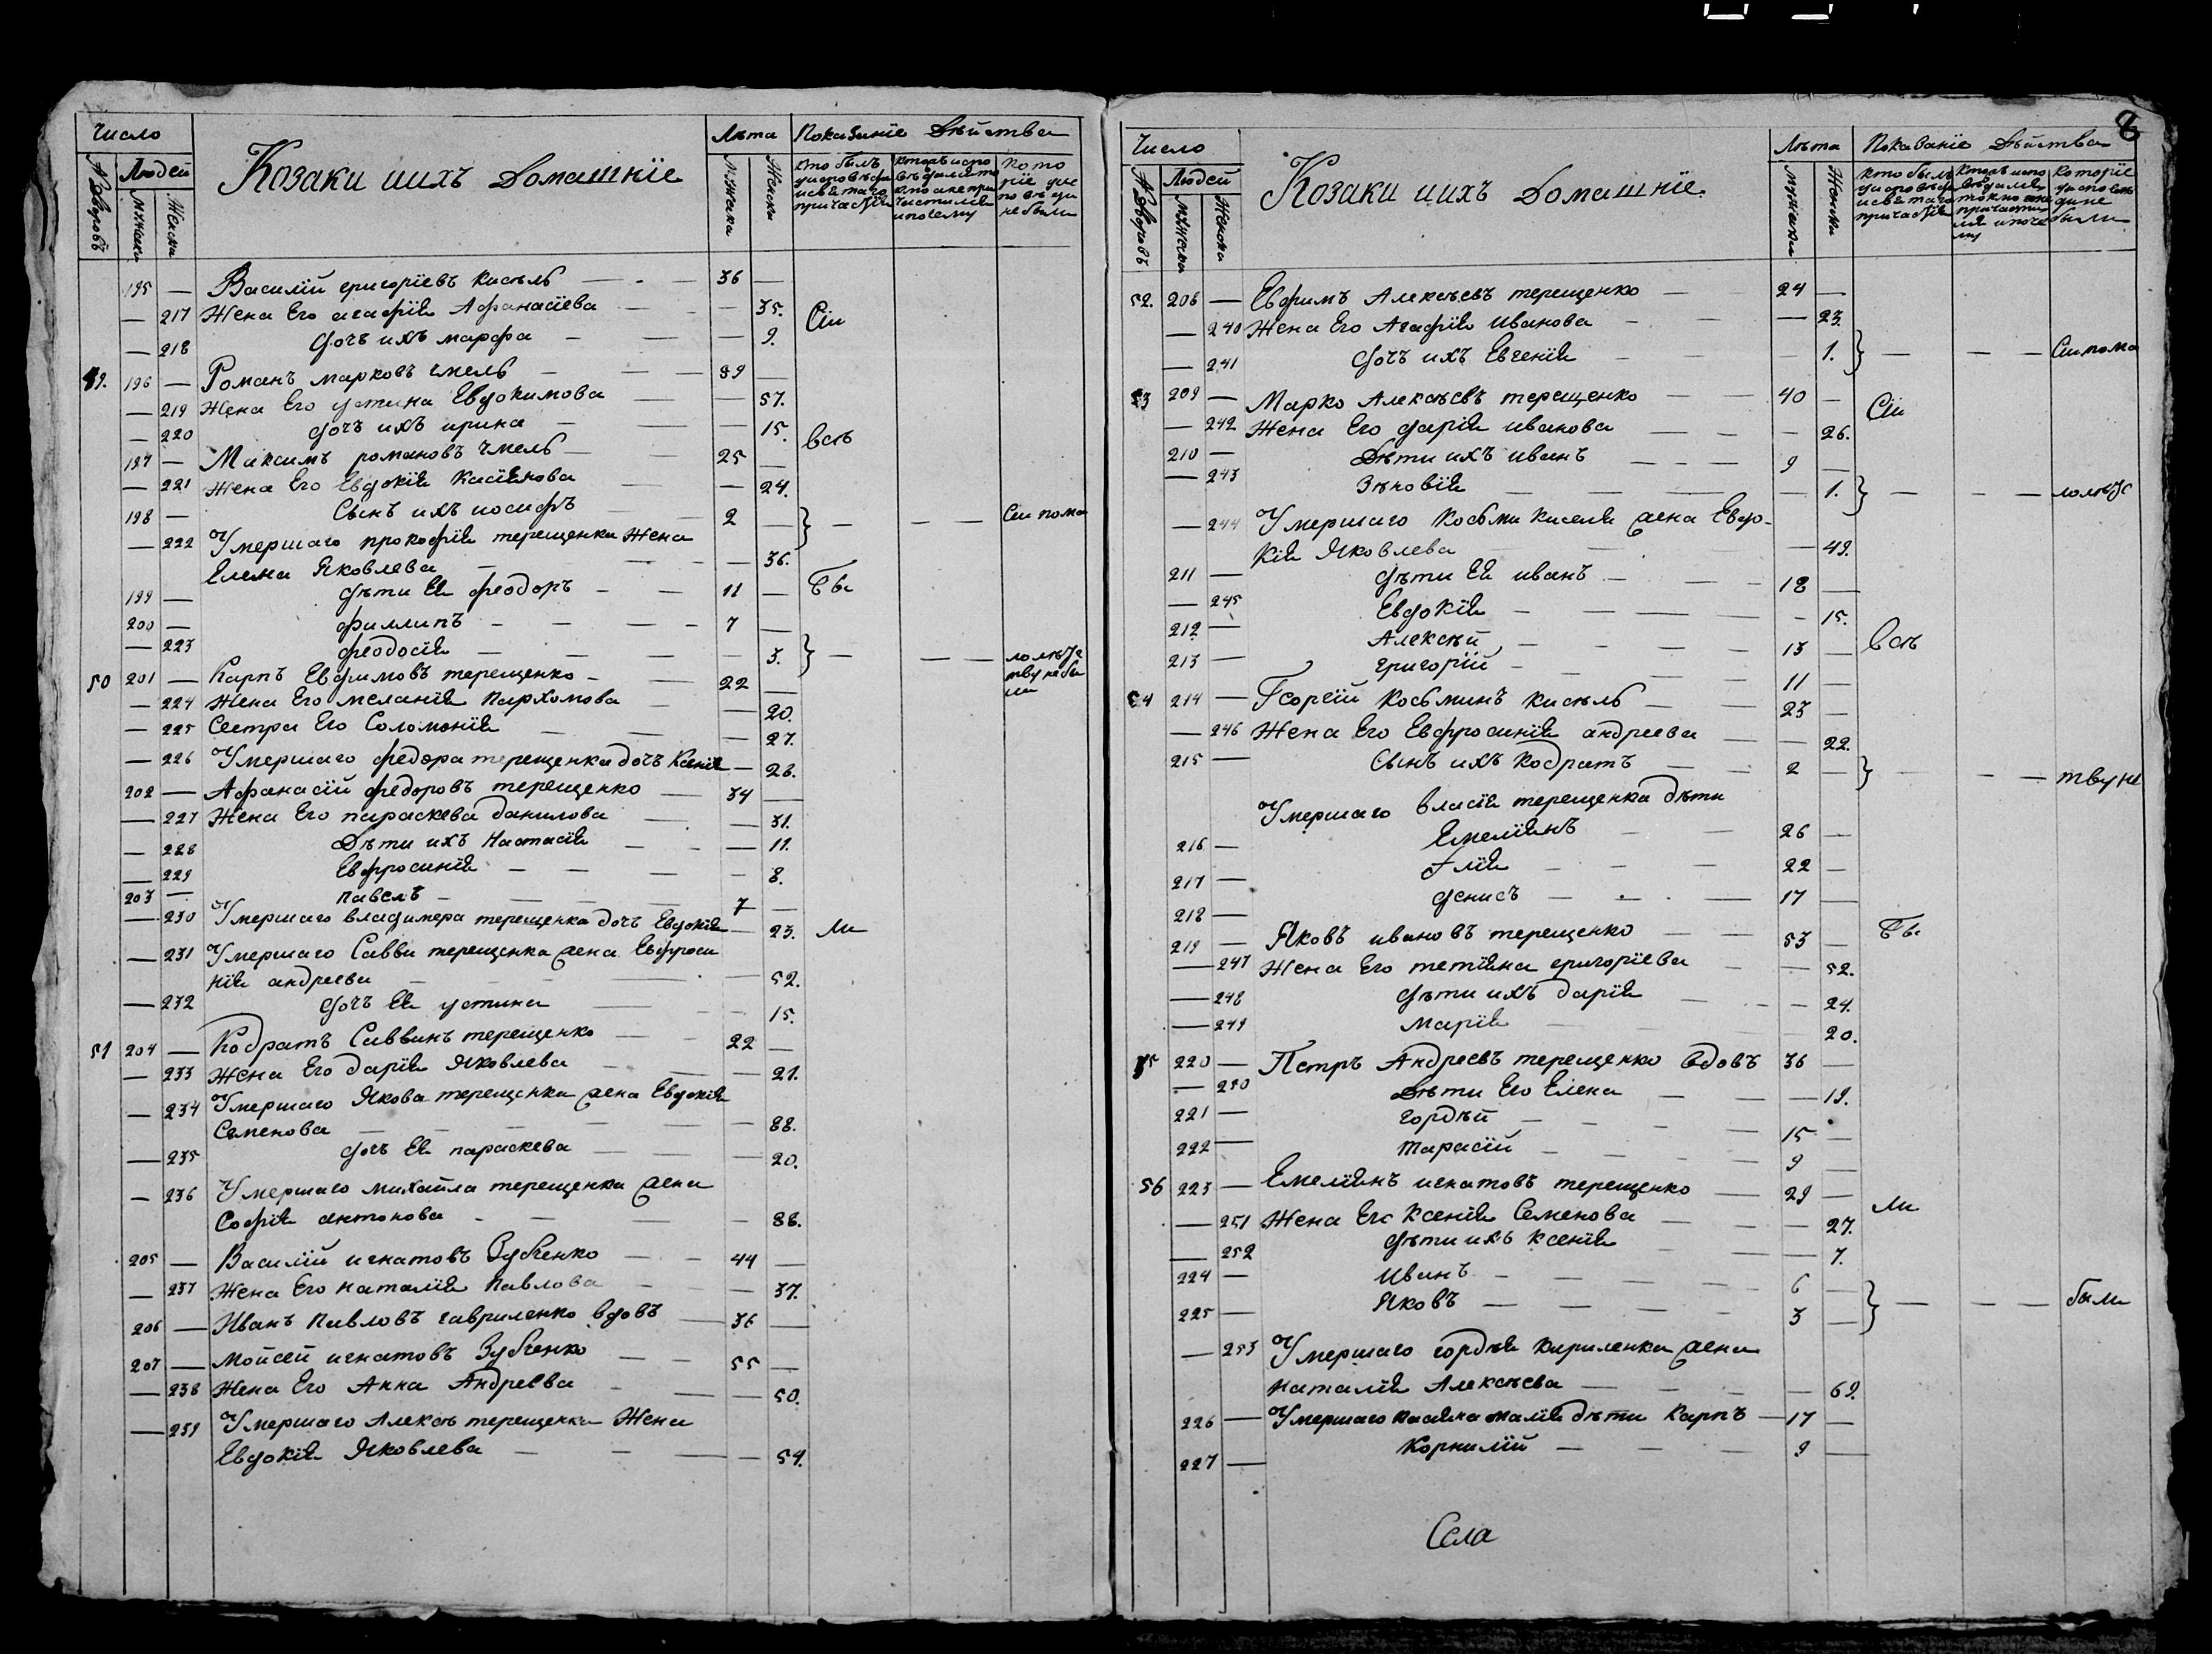 Число
Лѣта
Показаніе Дѣйства
№ Дворовъ
Людей
Мужеска
Женска
Козаки иихъ Домашніе
Мужеска
Женска
кто былъ
у исповѣди
и св҃таго
причастїя
195 — Василїй григорїевъ кисѣль — 36 —
— 217 Жена Его агафїя Афанасїева — 35. Сіи
— 218 дочъ ихъ марфа — 9.
49. 196 — Романъ марковъ чмель — 59 —
— 219 Жена Его устина Евдокимова — 57.
— 220 дочъ ихъ ирина — 15. всѣ
197 — Максимъ романовъ чмель — 25 —
— 221 Жена Его Евдокїя Касїянова — 24.
198 — Сынъ ихъ иосифъ 2 — } — — — Сіи помо
— 222 Умершаго прокофїя терещенка Жена
Елена Яковлева — 36.
199 — дѣти Ея феодоръ — 11 — Бы
200 — филлипъ — 7 —
— 223 феодосїя — 3. } — — — лолѣтс
50 201 — Карпъ Евфимовъ терещенко — 22 — тву не бы
ли
— 224 Жена Его меланїя Пархомова — 20.
— 225 Сестра Его Соломонїя — 27.
— 226 Умершаго федора терещенка дочъ Ксенїя — 26.
202 — Афанасїй федоровъ терещенко — 34 —
— 227 Жена Его параскева данилова — 31.
— 228 Дѣти ихъ Настасїя — 11.
— 229 Евфросинїя — 8.
203 — павелъ — 7 —
— 230 Умершаго владимера терещенка дочъ Евдокїя — 23. ли
— 231 Умершаго Савви терещенка жена Евфроси
нїя андреева — 52.
— 232 дочъ Ея устина — 15.
51 204 — Кодратъ Саввинъ терещенко — 22 —
— 233 Жена Его дарїя Яковлева — 21.
— 234 Умершаго Якова терещенка жена Евдокїя
Семенова — 88.
— 235 дочъ Ея параскева — 20.
— 236 Умершаго михайла терещенка жена
Софїя антонова — 88.
205 — Василїй игнатовъ Зубченко — 44 —
— 237 Жена Его наталїя Павлова — 37.
206 — Иванъ Павловъ гавриленко вдовъ — 36 —
207 — Мойсей игнатовъ Зубченко — 55 —
— 238 Жена Его Анна Андреева — 50.
— 239 Умершаго Алексѣ терещенка Жена
Евдокїя Яковлева — 54.
8
Число
Лѣта
Показаніе Дѣйства
№ Дворовъ
Людей
Мужеска
Женска
Козаки иихъ Домашніе.
Мужеска
Женска
кто былъ
у исповѣди
и св҃таго
причастїя
которїе
у исповѣ
ди не
были
52. 208 — Евфимъ Алексѣевъ терещенко — 24 —
— 240 Жена Его Агафїя Иванова — 23.
— 241 дочъ ихъ Евгенїя — 1. } — — — Сіи помо
53 209 — Марко Алексѣевъ терещенко — 40 — Сіи
— 242 Жена Его дарїя иванова — 26.
210 — Дѣти ихъ иванъ — 9 —
— 243 Зѣновїя — 1. } — — — лолѣтс
— 244 Умершаго Косьми киселя жена Евдо-
кїя Яковлева — 49.
211 — дѣти Ея иванъ — 18 —
— 245 Евдокїя — 15.
212 — Алексѣй — 13 — всѣ
213 — григорїй — 11 —
54 214 — Георгїй косьминъ кисѣль — 23 —
— 246 Жена Его Евфросинїя андреева — 22.
215 — Сынъ ихъ кодратъ — 2 — } — — — тву не
Умершаго власїя терещенка дѣти
216 — Емелїянъ — 26 —
217 — Їлїя — 22 —
218 — денисъ — 17 —
219 — Яковъ ивановъ терещенко — 53 — Бы
— 247 Жена Его тетїяна григорїева — 52.
— 248 дѣти ихъ дарїя — 24.
— 249 Марїя — 20.
55 220 — Петръ Андреевъ терещенко вдовъ 36 —
— 250 Дѣти Его Елена — 19.
221 — гордѣй — 15 —
222 — тарасїй — 9 —
56 223 — Емелїянъ игнатовъ терещенко — 29 —
— 251 Жена Его Ксенїя Семенова — 27. ли
— 252 дѣти ихъ ксенїя — 7.
224 — Иванъ — 6 —
225 — Яковъ — 3 — } — — — были
— 253 Умершаго гордѣя кириленка жена
наталїя Алексѣева — 69.
226 — Умершаго дѣти Карпъ — 17 —
227 — Корнилїй — 9 —
Села